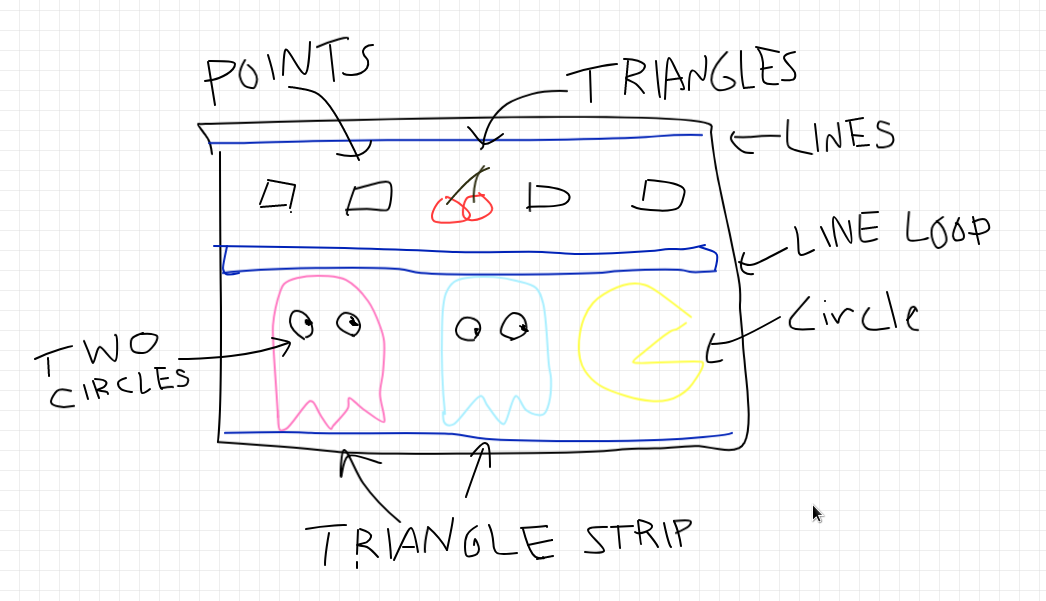 POINTS
TRIANGLES
LINES
LINE LOOP
Circle
TWO
CIRCLES
TRIANGLE STRIP